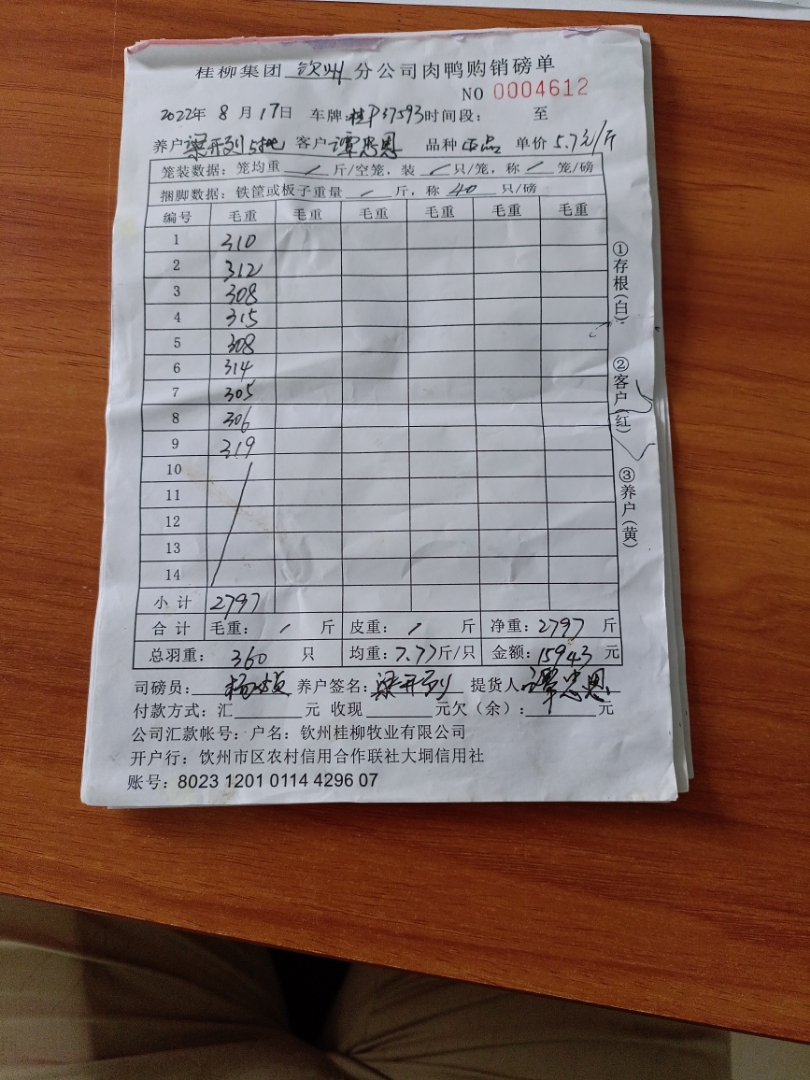 桂柳集团 钦州 分公司肉鸭购销磅单
NO 0004612
2022年 8 月 17日 车牌:桂P37593时间段: 至
养户梁开列5批 客户谭忠恩 品种 正品 单价 5.7元/斤
笼装数据:笼均重 / 斤/空笼,装 / 只/笼,称 / 笼/磅
捆脚数据:铁筐或板子重量 / 斤,称 40 只/磅
编号 毛重 毛重 毛重 毛重 毛重 毛重
1 310
2 312
3 308
4 315
5 308
6 314
7 305
8 306
9 319
10
11
12
13
14
小计 2797
合计 毛重: / 斤 皮重: / 斤 净重:2797 斤
总羽重: 360 只 均重:7.77斤/只 金额:15943 元
司磅员: 养户签名:梁开列 提货人:谭忠恩
付款方式:汇 元 收现 元欠(余): 元
公司汇款帐号:户名:钦州桂柳牧业有限公司
开户行:钦州市区农村信用合作联社大垌信用社
账号:8023 1201 0114 4296 07
①存根(白)
②客户(红)
③养户(黄)